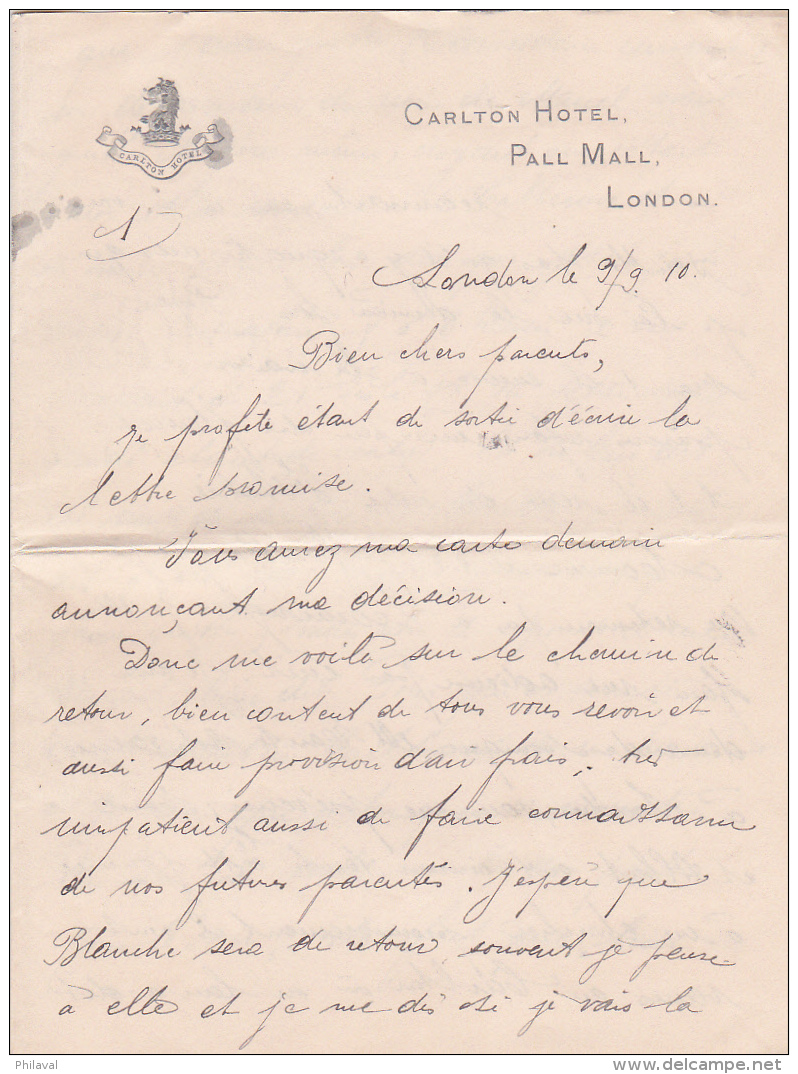 CARLTON HOTEL
CARLTON HOTEL,
PALL MALL,
LONDON.
1
London le 9/9. 10.
Bien chers parents,
je profite étant de sortie d'écrire la
lettre promise.
Vous aurez ma carte demain
annonçant ma décision.
Donc me voilà sur le chemin de
retour, bien content de tous vous revoir et
aussi faire provision d'air frais, très
impatient aussi de faire connaissance
de nos futures parentés. J'espère que
Blanche sera de retour, souvent je pense
à elle et je me dis si je vais la
Philaval
www.delcampe.net